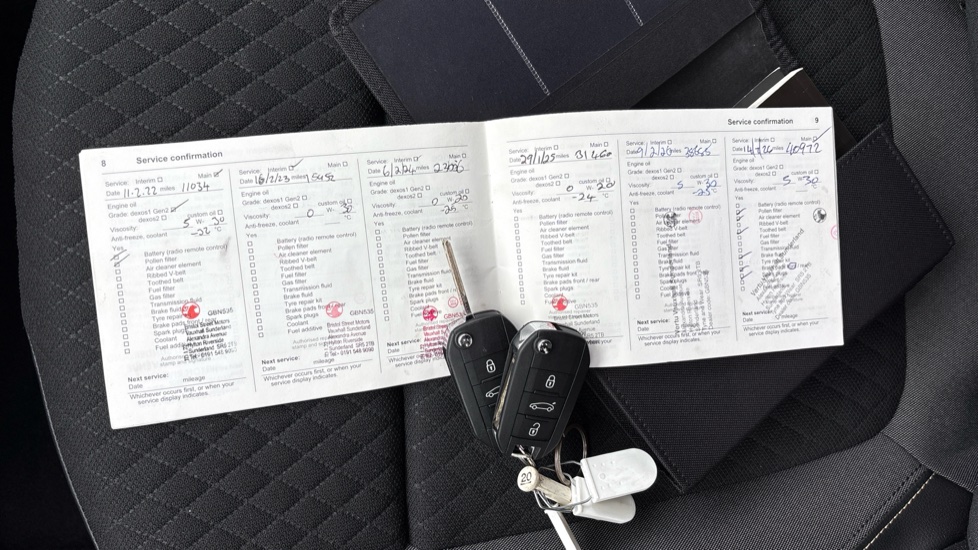 8 Service confirmation
Service: Interim Main
Date 11.2.22 miles 11034
Engine oil
Grade: dexos1 Gen2 custom oil
dexos2
Viscosity: 5 W- 30
Anti-freeze, coolant -32 °C
Yes
Battery (radio remote control)
Pollen filter
Air cleaner element
Ribbed V-belt
Toothed belt
Fuel filter
Gas filter
Transmission fluid
Brake fluid
Tyre repair kit
Brake pads front / rear
Spark plugs
Coolant
Fuel additive
GBN535
Bristol Street Motors
Vauxhall Sunderland
Alexandra Avenue
Next service:
Date mileage
Whichever occurs first, or when your
service display indicates.
Service: Interim Main
Date 16/2/23 miles 15452
Engine oil
Grade: dexos1 Gen2 custom oil
dexos2
Viscosity: 0 W- 30
Anti-freeze, coolant °C
Yes
Battery (radio remote control)
Pollen filter
Air cleaner element
Ribbed V-belt
Toothed belt
Fuel filter
Gas filter
Transmission fluid
Brake fluid
Tyre repair kit
Brake pads front / rear
Spark plugs
Coolant
Fuel additive
GBN535
Bristol Street Motors
Vauxhall Sunderland
Alexandra Avenue
Next service:
Date mileage
Whichever occurs first, or when your
service display indicates.
Service: Interim Main
Date 6/2/24 miles
Engine oil
Grade: dexos1 Gen2 custom oil
dexos2
Viscosity: 0 W- 20
Anti-freeze, coolant -25 °C
Yes
Battery (radio remote control)
Pollen filter
Air cleaner element
Ribbed V-belt
Toothed belt
Fuel filter
Gas filter
Transmission fluid
Brake fluid
Tyre repair kit
Brake pads front
Spark plugs
Coolant
Fuel additive
GBN535
Next service:
Date
Whichever occurs first, or
service display indicates.
Service confirmation 9
Service: Interim Main
Date 29/1/25 miles 31460
Engine oil
Grade: dexos1 Gen2 custom oil
dexos2
Viscosity: 0 W- 20
Anti-freeze, coolant -24 °C
Yes
Battery (radio remote control)
Pollen filter
Air cleaner element
Ribbed V-belt
Toothed belt
Fuel filter
Gas filter
Transmission fluid
Brake fluid
Tyre repair kit
Brake pads front / rear
Spark plugs
Coolant
Service: Interim Main
Date 9/2/26 miles
Engine oil
Grade: dexos1 Gen2 custom oil
dexos2
Viscosity: 5 W- 30
Anti-freeze, coolant -25 °C
Yes
Battery (radio remote control)
Pollen filter
Air cleaner element
Ribbed V-belt
Toothed belt
Fuel filter
Gas filter
Transmission fluid
Brake fluid
Tyre repair kit
Brake pads front / rear
Spark plugs
Coolant
Fuel additive
Next service:
Date mileage
Whichever occurs first, or when your
service display indicates.
Service: Interim Main
Date miles 40972
Engine oil
Grade: dexos1 Gen2 custom oil
dexos2
Viscosity: 5 W- 30
Anti-freeze, coolant °C
Yes
Battery (radio remote control)
Pollen filter
Air cleaner element
Ribbed V-belt
Toothed belt
Fuel filter
Gas filter
Transmission fluid
Brake fluid
Tyre repair kit
Brake pads
Spark plugs
Coolant
Fuel additive
Next service:
Date mileage
Whichever occurs first, or when your
service display indicates.
20